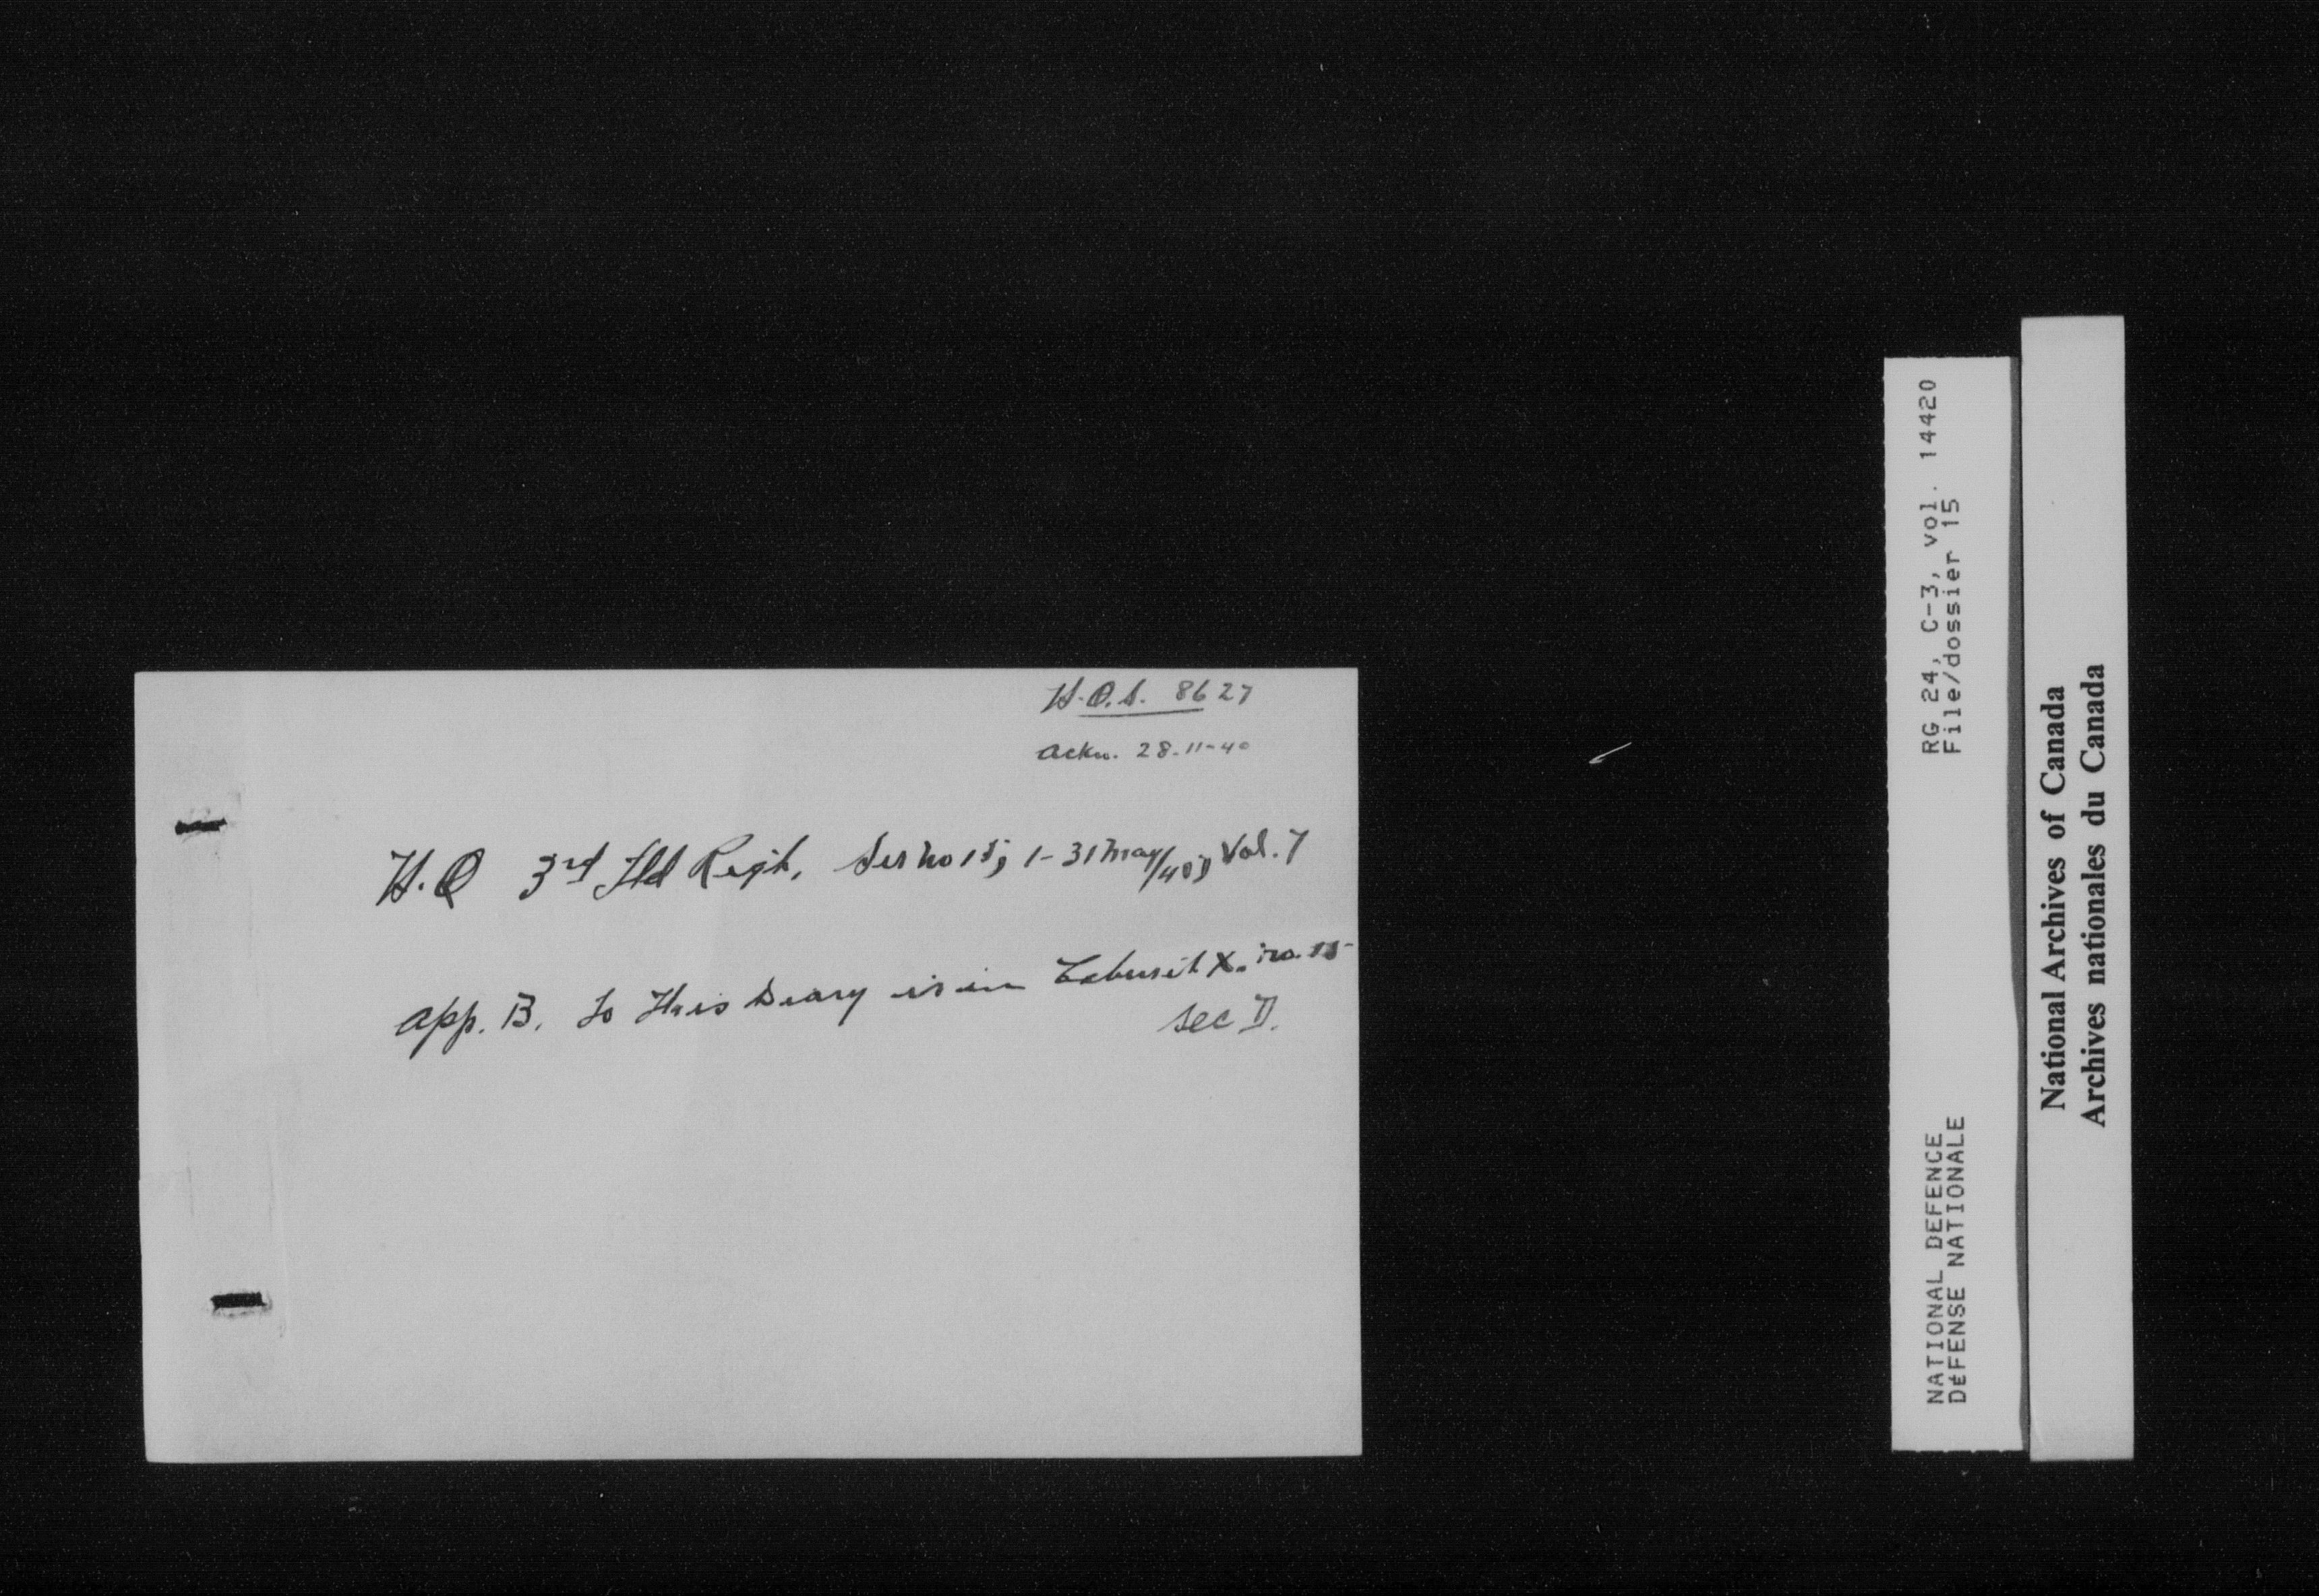 H.Q.S. 8627
Ackn. 28-11-40
H.Q 3rd Fld Regt, Ser no 15; 1-31 May/40; Vol. 7
App. B. to This Diary is in Cabinet X. no. 15
Sec D.
RG 24, C-3, vol. 14420
File/dossier 15
NATIONAL DEFENCE
DÉFENSE NATIONALE
National Archives of Canada
Archives nationales du Canada